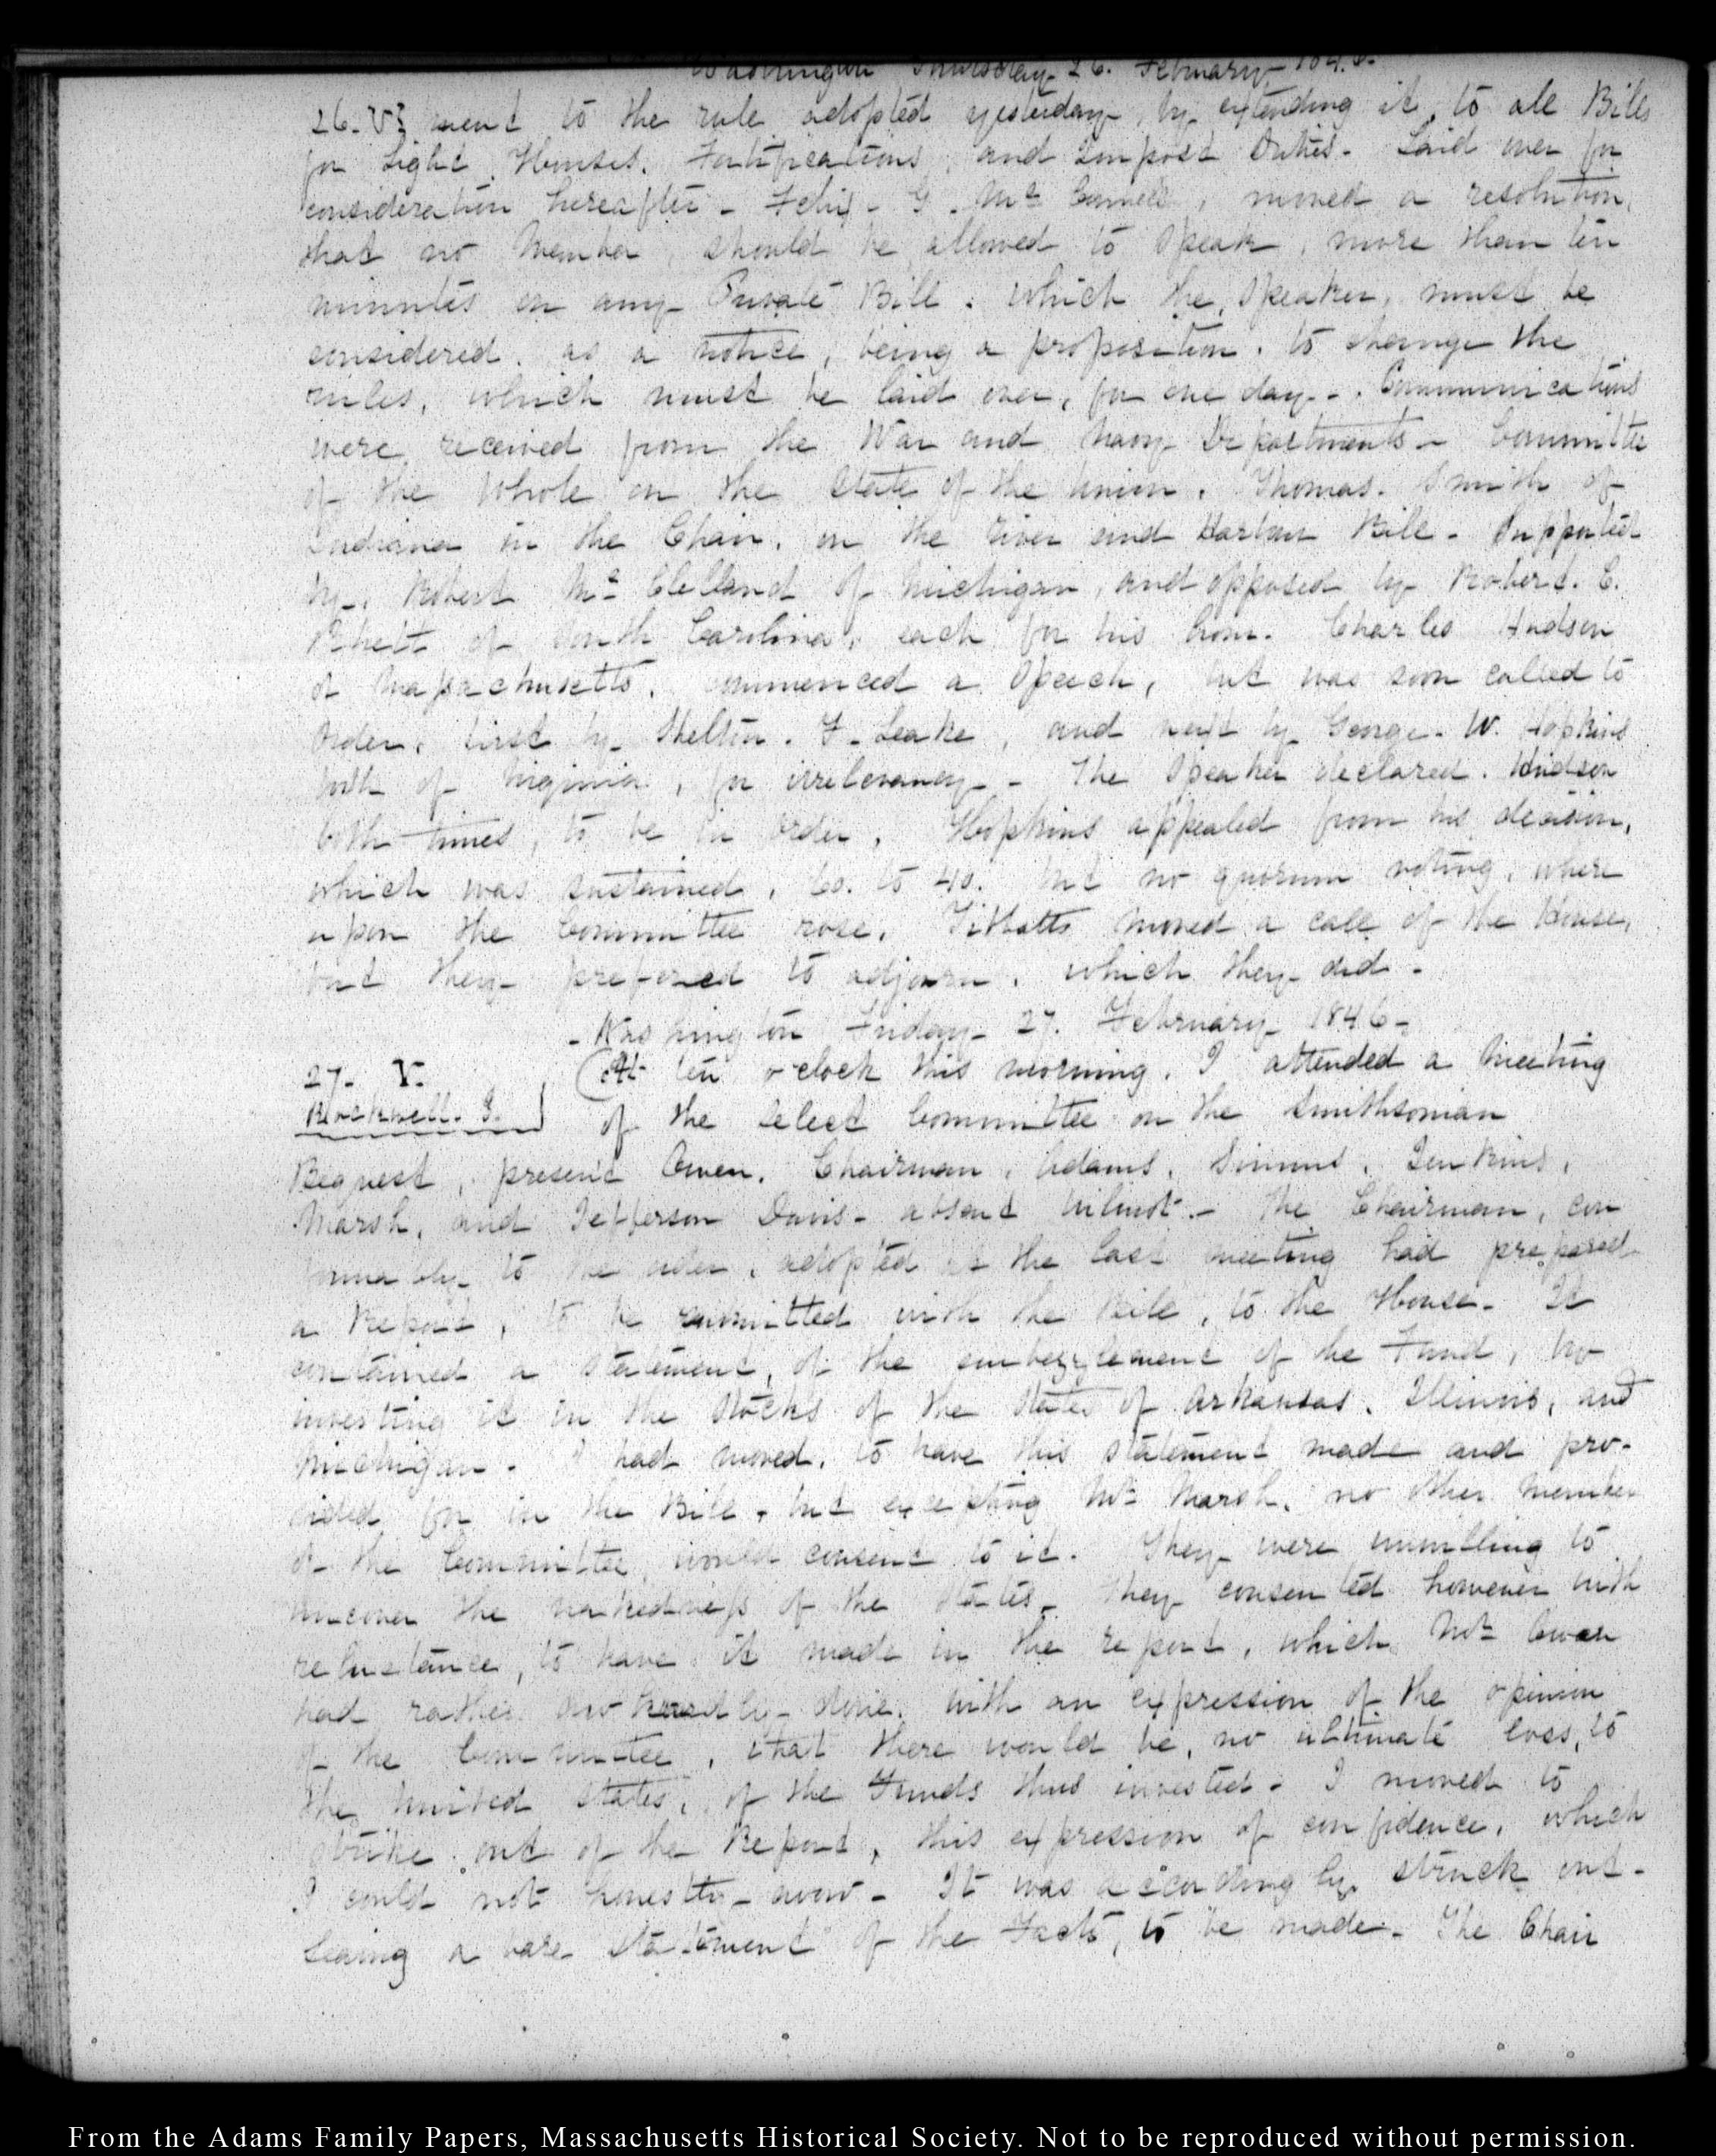 Washington Thursday 26. February 1846.
26. V. ment to the rule adopted yesterday, by extending it, to all Bills
for Light Houses. Fortifications, and Impost Duties. Laid over for
consideration hereafter. Felix. G. McConnell, moved a resolution,
that no Member, should be allowed to speak, more than ten
minutes on any Private Bill. which the, Speaker, must be
considered, as a notice, being a proposition. to change the
rules, which must be laid over, for one day. Communications
were received from the War and Navy Departments. Committee
of the Whole on the State of the Union. Thomas. Smith of
Indiana in the Chair. on the River and Harbour Bill. Supported
by. Robert McClelland of Michigan, and opposed by Robert. B.
Rhett of South Carolina, each for his hour. Charles Hudson
of Massachusetts, commenced a Speech, but was soon called to
Order, first by Shelton. F. Leake, and next by George. W. Hopkins
both of Virginia, for irrelevancy. The Speaker declared. Hudson
both times, to be in order. Hopkins appealed from his decision,
which was sustained, 60. to 40. but no quorum voting, where
upon the Committee rose. Tibbatts moved a call of the House,
but they preferred to adjourn, which they did.
Washington Friday 27. February 1846.
27. V. At ten o'clock this morning, I attended a Meeting
Rockwell. J. of the select Committee on the Smithsonian
Bequest, present Owen. Chairman, Adams, Simms, Jenkins,
Marsh, and Jefferson Davis. absent Wilmot. The Chairman, con
formably to the order, adopted at the last meeting had prepared
a Report, to be committed with the Bill, to the House. It
contained a statement, of the embezzlement of the Fund, by
investing it in the Stocks of the States of Arkansas, Illinois, and
Michigan. I had moved, to have this statement made and pro-
vided for in the Bill, but excepting Mr Marsh, no other member
of the Committee, would consent to it. They were unwilling to
uncover the nakedness of the States. They consented however with
reluctance, to have it made in the report, which Mr Owen
had rather awkwardly done, with an expression of the opinion
of the Committee, that there would be, no ultimate loss, to
the United States, of the Funds thus invested. I moved to
strike out of the Report, this expression of confidence, which
I could not honestly avow. It was accordingly struck out.
leaving a bare statement of the Facts, to be made. The Chair
From the Adams Family Papers, Massachusetts Historical Society. Not to be reproduced without permission.